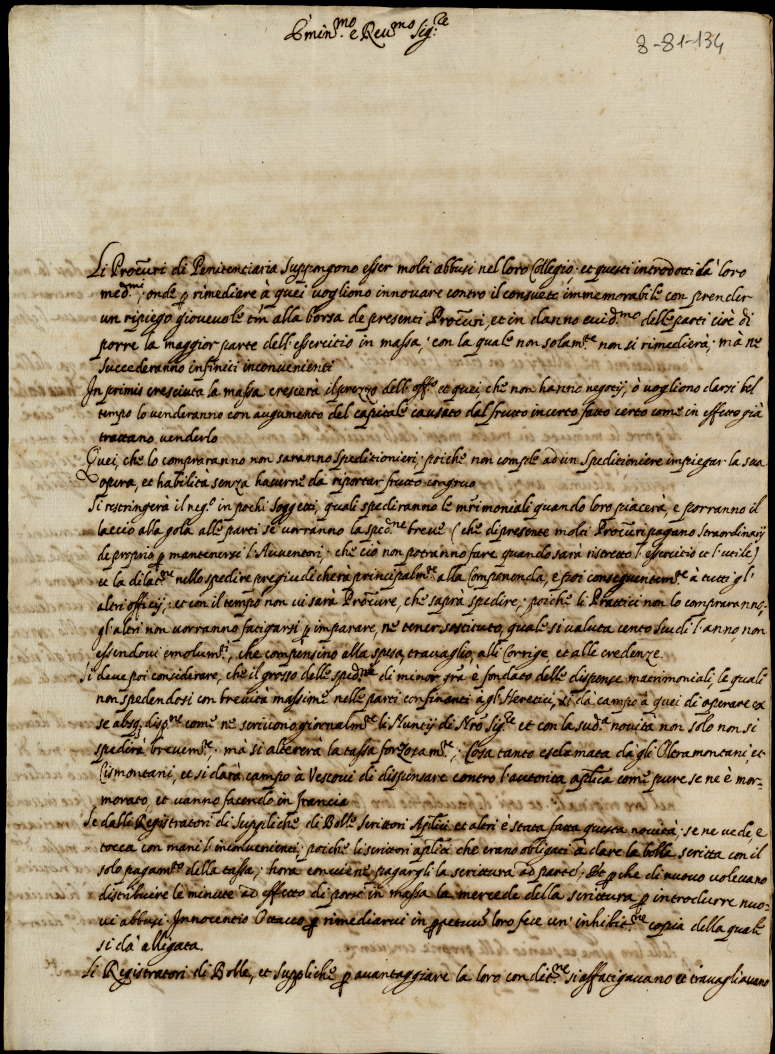 Emin.mo e Reu.mo Sig.re
8-81-134
Li Procuri di Penitenciaria Suppongono esser molti abbusi nel loro Collegio, et questi introdotti da loro
med.mi, onde p rimediare à quei vogliono innovare contro il consueto immemorabile con prender
un ripiego giouevole tm alla borsa de presenti Procuri, et in danno euid.mo delle parti cioè di
porre la maggior parte dell'essercitio in massa, con la quale non solam.te non si rimedierà, mà ne
succederanno infiniti inconvenienti
In primis cresciuta la massa crescerà il prezzo dell'off.o et quei che non hanno negotij, ò vogliono darsi bel
tempo lo venderanno con augumento del capitale causato dal frutto incerto fatto certo come in effetto già
trattano venderlo
Quei, che lo compraranno non saranno speditionieri, poiche non comple ad un speditioniere impiegar la sua
opera, et habilita senza haverne da riportar frutto congruo
Si restringerà il neg.o in pochi soggetti, quali spediranno le mrimoniali quando loro piacerà, e porranno il
laccio alla gola alle parti se vorranno la sped.ne breve (che di presente molti Procuri pagano straordinarij
de proprio p mantenersi l'Auventori, che ciò non potranno fare quando sarà ristretto l'essercitio et l'utile)
et la dilat.ne nello spedire pregiudicherà principalm.te alla Componenda, e poi conseguentem.te à tutti gl'
altri officij, et con il tempo non ui sarà Procure, che saprà spedire, poiche li Prattici non lo compraranno,
gl'altri non vorranno fatigarsi p imparare, ne tener sostituto, quale si valuta cento scudi l'anno, non
essendovi emolum.ti, che compensino alla spesa, travaglio, alli Corrige et alle credenze.
Si deve poi considerare, che il grosso delle sped.ni de minor gra è fondato delle dispense matrimoniali, le quali
non spedendosi con brevità massime nelle parti confinanti agli Heretici, si dà campo à quei di operare ex
se absq. disp.ne come ne scrivono giornalm.te li Nuncij di Nro Sig.re et con la sud.a novità non solo non si
spedirà brevem.te, ma si altererà la tassa forzosam.te, Cosa tanto esclamata dagli Oltramontani, et
Cismontani, et si darà campo à Vescovi di dispensare contro l'autorità aplica come pure se ne è mor=
morato, et vanno facendo in francia
Se dalli Registratori di Suppliche di Bolle scrittori Aplici et altri è stata fatta questa novità, se ne vede, e
tocca con mani l'inconvenienti, poiche li scrittori aplici che erano obligati à dare la bolla scritta con il
solo pagam.to della tassa, hora conviene pagargli la scrittura ad parte. Et p che di nuovo volevano
distribuire le minute ad effetto di porre in massa la mercede della scrittura p introdurre nuo=
vi abbusi. Innocentio Ottavo p rimediarvi in ppetuu loro fece un'inhibit.ne copia della quale
si dà alligata.
Li Registratori di Bolle, et Suppliche p avantaggiare la loro condit.ne si affatigavano et travagliavano